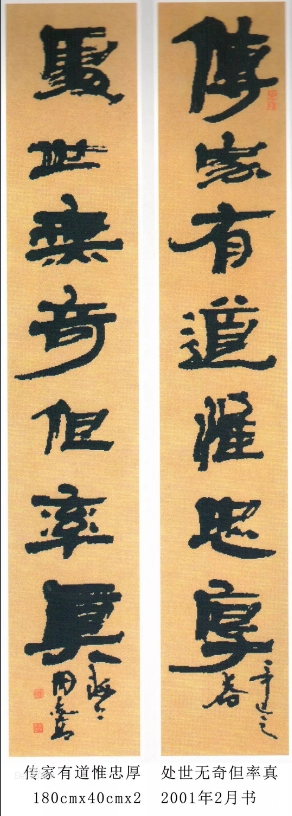 傳家有道惟忠厚
辛巳之
春
處世無奇但率真
周志高
传家有道惟忠厚 处世无奇但率真
180cmx40cmx2 2001年2月书